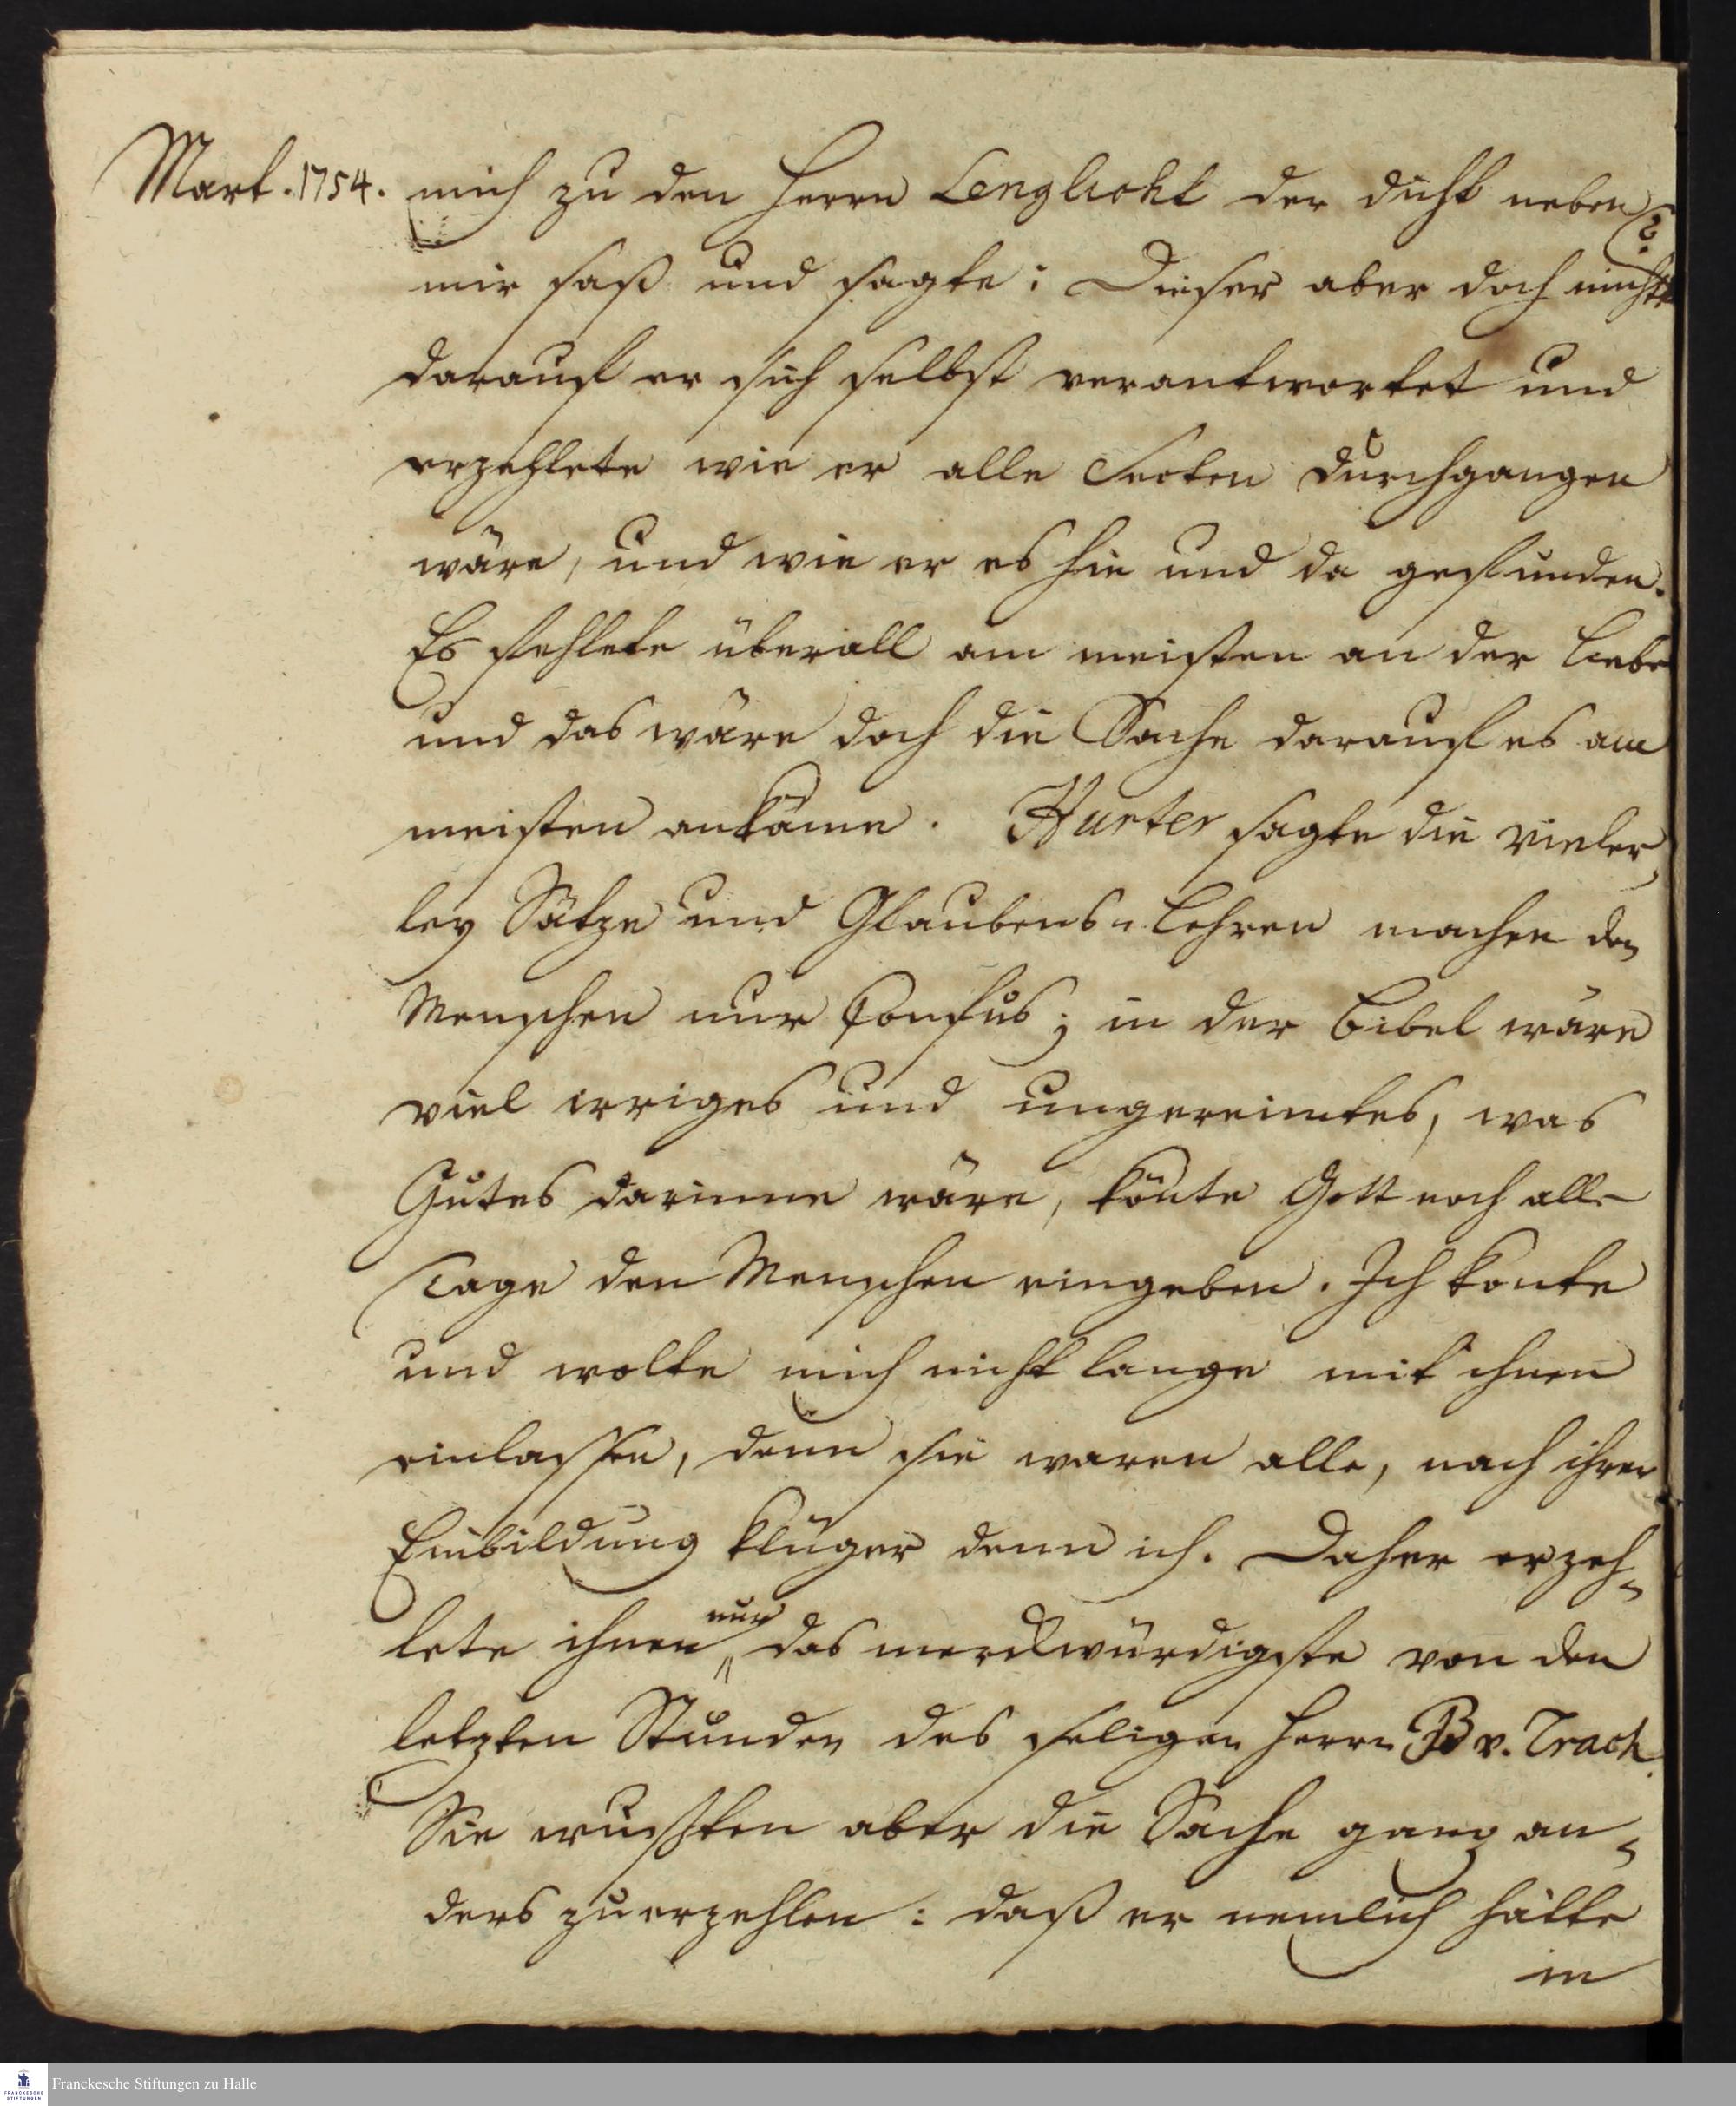 Mart. 1754.
mich zu den Herrn Lenglicht der dicht neben
mir saß und sagte: Dieser aber doch nicht?
darauf er sich selbst verantwortet und
erzehlete wie er alle Secten durchgangen
wäre, und wie er es hie und da gefunden.
Es fehlete überall am meisten an der Liebe
und das wäre doch die Sache darauf es am
meisten ankäme. Hurter sagte die vieler
ley Sätze und Glaubens-Lehren machen den
Menschen nur Confus; in der Bibel wäre
viel irriges und ungereimtes, was
Gutes darinne wäre, könte Gott noch alle
Tage den Menschen eingeben. Ich konte
und wolte mich nicht lange mit ihnen
einlassen, denn sie waren alle, nach ihrer
Einbildung klüger denn ich. Daher erzeh-
lete ihnen nur das merckwürdigste von den
letzten Stunden des seligen Herrn B v. Trach.
Sie wußten aber die Sache ganz an-
ders zu erzehlen: daß er nemlich hätte
in
Franckesche Stiftungen zu Halle